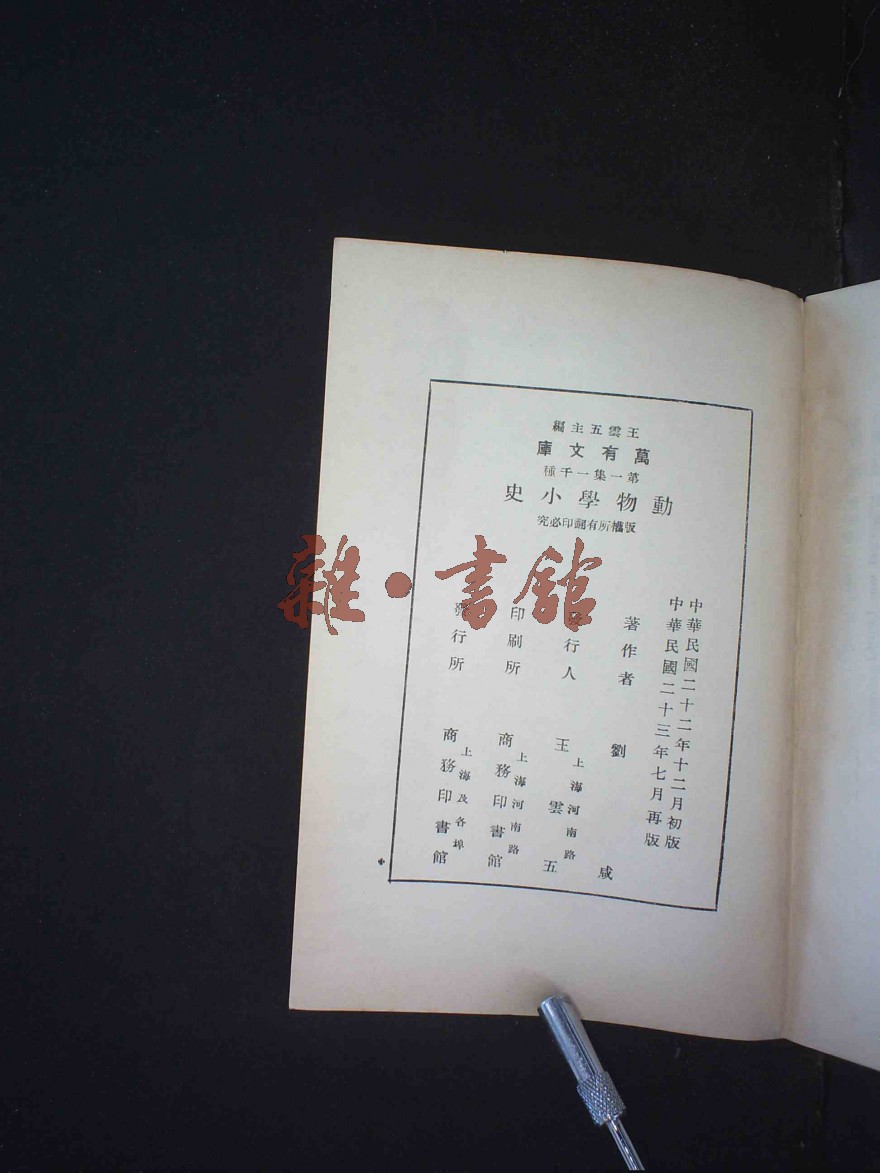 王雲五主編
萬有文庫
第一集一千種
動物學小史
版權所有翻印必究
中華民國二十二年十二月初版
中華民國二十三年七月再版
著作者 劉咸
發行人 王雲五
上海河南路
印刷所 商務印書館
上海河南路
發行所 商務印書館
上海及各埠
雜·書館